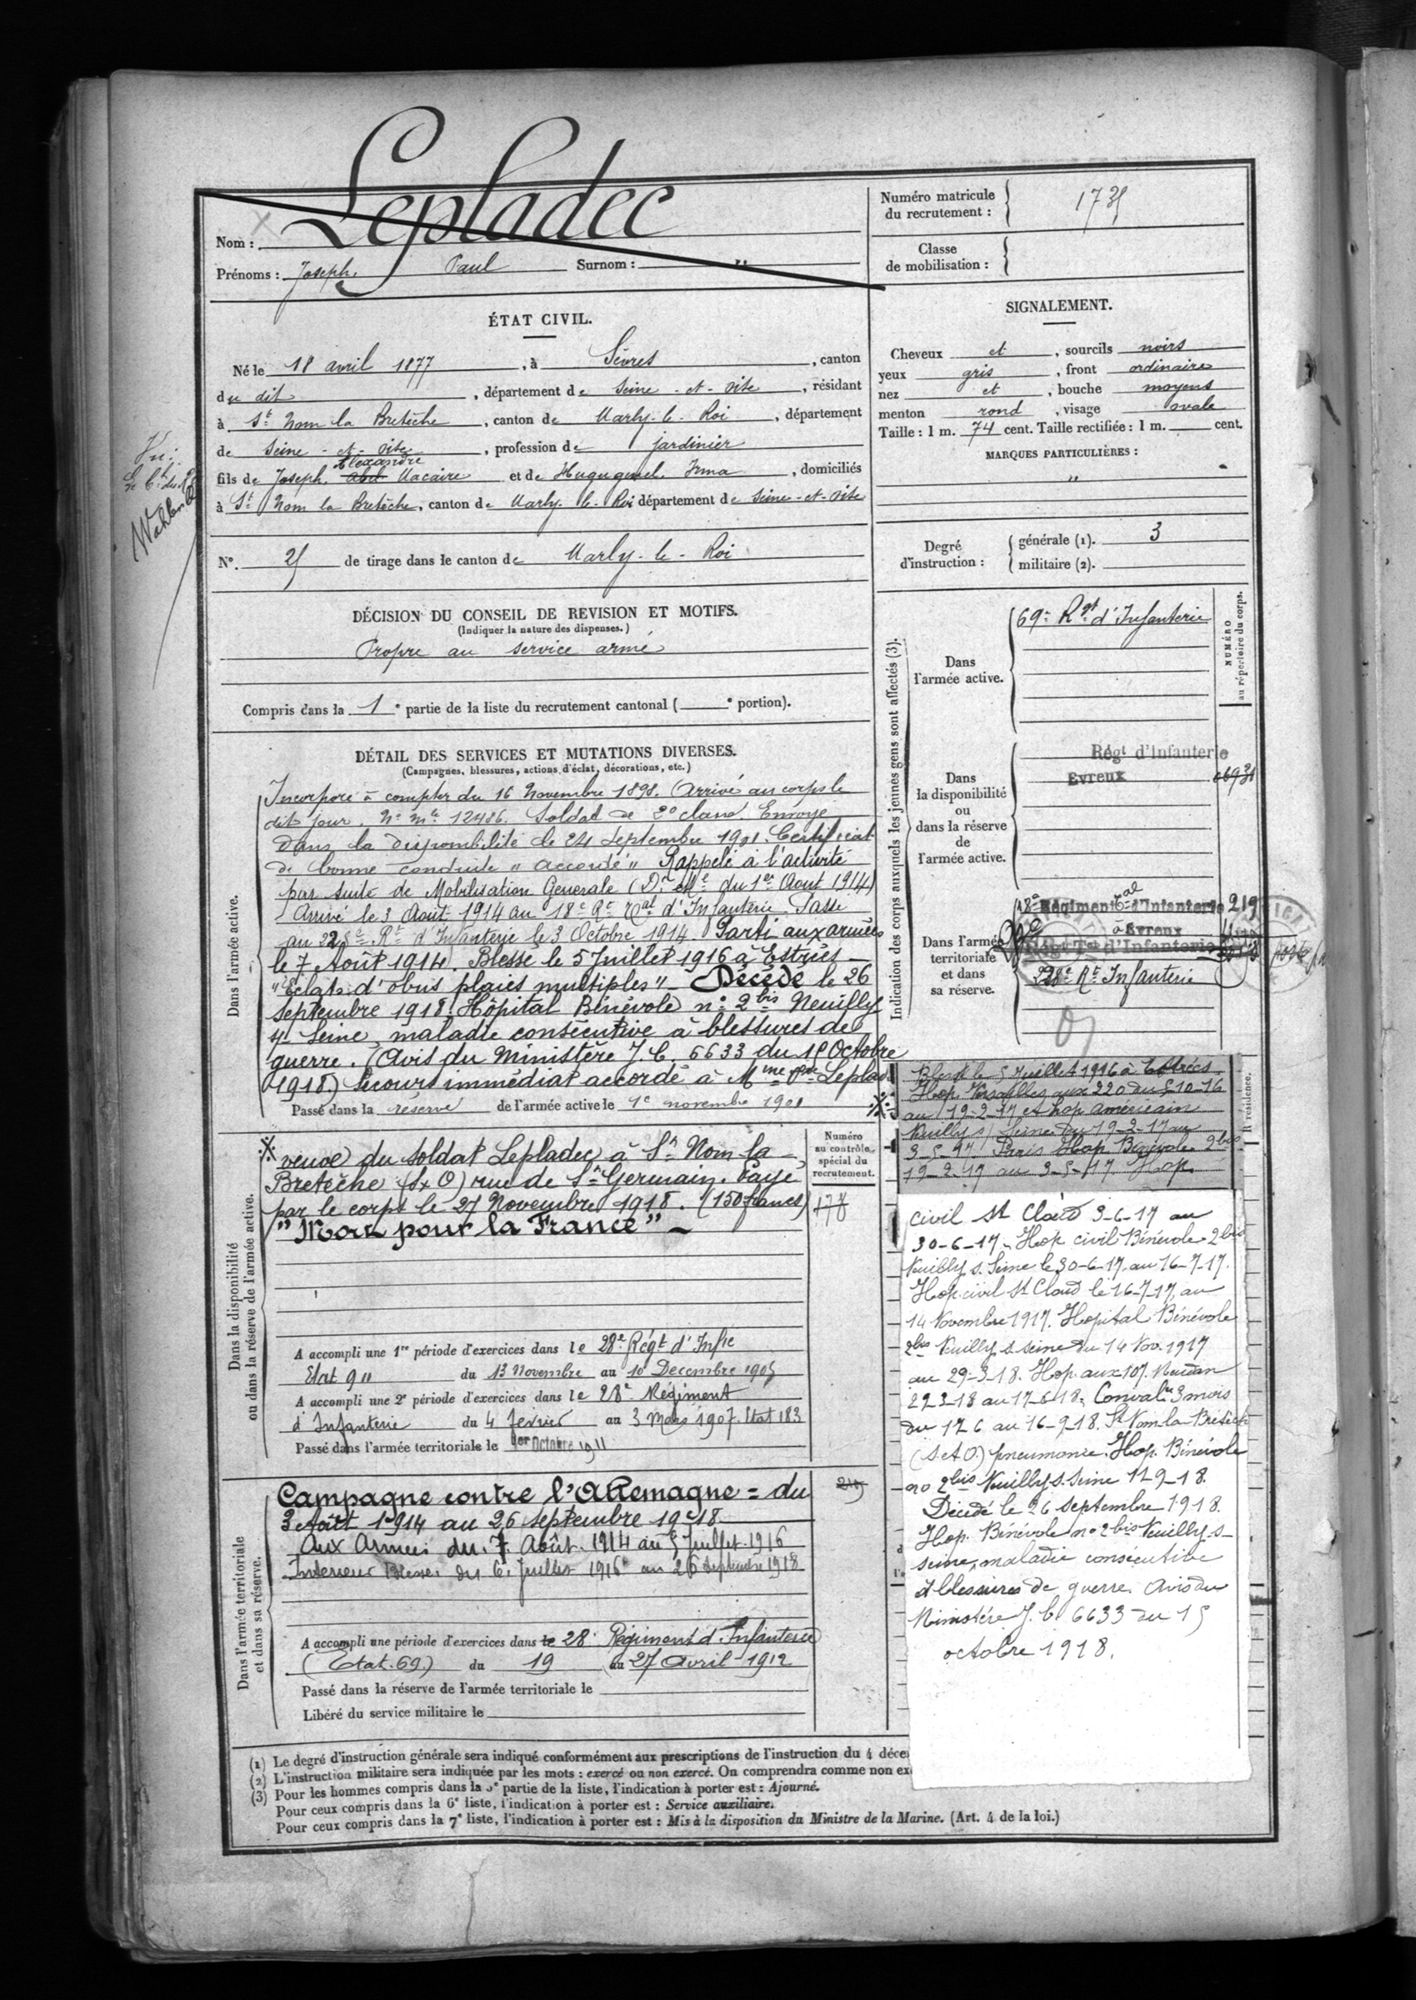 Nom : Lepladec
Prénoms : Joseph, Paul Surnom : "
Numéro matricule du recrutement :
Classe de mobilisation :
ÉTAT CIVIL.
Né le 18 avril 1877, à Sèvres, canton
du dit, département de Seine-et-Oise, résidant
à St Nom la Bretèche, canton de Marly-le-Roi, département
de Seine-et-Oise, profession de jardinier
Alexandre
fils de Joseph, Abel Macaire et de Irma, domiciliés
à St Nom la Bretèche, canton de Marly-le-Roi département de Seine-et-Oise
N°. de tirage dans le canton de Marly-le-Roi
SIGNALEMENT.
Cheveux et, sourcils noirs
yeux gris, front ordinaire
nez et, bouche moyens
menton rond, visage ovale
Taille : 1 m. 74 cent. Taille rectifiée : 1 m. cent.
MARQUES PARTICULIÈRES :
"
Degré d'instruction : générale (1). 3
militaire (2).
Vu :
DÉCISION DU CONSEIL DE REVISION ET MOTIFS.
(Indiquer la nature des dispenses.)
Propre au service armé
Compris dans la 1e partie de la liste du recrutement cantonal ( e portion).
DÉTAIL DES SERVICES ET MUTATIONS DIVERSES.
(Campagnes, blessures, actions d'éclat, décorations, etc.)
Dans l'armée active.
Incorporé à compter du 16 Novembre 1898. Arrivé au corps le
dit jour. N° mle 12486. Soldat de 2e classe. Envoyé
dans la disponibilité le 24 Septembre 1901. Certificat
de bonne conduite "accordé" Rappelé à l'activité
par suite de Mobilisation Générale (D. du 1er Aout 1914)
Arrivé le 3 Aout 1914 au 18e Rt Tal d'Infanterie. Passé
au 228e Rt d'Infanterie le 3 Octobre 1914. Parti aux armées
le 7 Août 1914. Blessé le 5 Juillet 1916 à Estrées
"Eclats d'obus plaies multiples" - Décédé le 26
Septembre 1918 Hôpital Bénévole n° 2bis Neuilly
s/ Seine, maladie consécutive à blessures de
guerre. (Avis du Ministère J.C. 6633 du 15 Octobre
1918) Secours immédiat accordé à Mme Vve Leplad
Passé dans la réserve de l'armée active le 1e novembre 1901
Dans la disponibilité
ou dans la réserve de l'armée active.
veuve du soldat Lepladec à St Nom la
Bretèche (S x O) rue de St Germain. Payé
par le corps le 27 Novembre 1918. (150 francs)
"Mort pour la France" -
Numéro au contrôle spécial du recrutement.
A accompli une 1re période d'exercices dans le 28e Régt d'Infie
Etat 911 du 13 Novembre au 10 Decembre 1905
A accompli une 2e période d'exercices dans le 28e Régiment
d'Infanterie du 4 fevrier au 3 Mars 1907. Etat 183
Passé dans l'armée territoriale le 1er Octobre 1911
Dans l'armée territoriale
et dans sa réserve.
Campagne contre l'Allemagne = du
3 Août 1914 au 26 septembre 1918
Aux Armées du 7 Août 1914 au 5 Juillet 1916
Interieur Blessé du 6 Juillet 1916 au 26 Septembre 1918
219
A accompli une période d'exercices dans le 28e Régiment d'Infanterie
(Etat. 69) du 19 au 27 Avril 1912
Passé dans la réserve de l'armée territoriale le
Libéré du service militaire le
Indication des corps auxquels les jeunes gens sont affectés (3).
NUMÉRO au répertoire du corps.
Dans l'armée active.
69e Rgt d'Infanterie
Dans la disponibilité ou dans la réserve de l'armée active.
Régt d'Infanterie
Evreux
Dans l'armée territoriale et dans sa réserve.
18e Régiment Tal d'Infanterie 219
à Evreux
Régt Tal d'Infanterie
228e Rt Infanterie
résidence.
Blessé le 5 Juillet 1916 à Estrées
Hop. Versailles aux 220 du 5-10-16
au 19-2-17 et hop américain
Neuilly s/ Seine du 19-2-17 au
3-5-17. Paris Hop Bénévole 2bis
19-2-17 au 3-5-17 Hop
Civil St Cloud 3-6-17 au
30-6-17. Hop civil Bénévole 2bis
Neuilly s. Seine le 30-6-17 au 16-7-17.
Hop civil St Cloud le 16-7-17 au
14 Novembre 1917. Hopital Bénévole
2bis Neuilly s seine du 14 Nov. 1917
au 29-3-18. Hop aux 107 Meudon
au 17-6-18. Conval. 3 mois
du 17 6 au 16-9-18. St Nom la Bretèche
(S et O.) pneumonie. Hop. Bénévole
no 2bis Neuilly s. Seine 11-9-18.
Décédé le 26 septembre 1918.
Hop. Bénévole no 2bis Neuilly s-
seine, maladie consécutive
à blessures de guerre. Avis du
Ministére J. C. 6633 du 15
octobre 1918.
(1) Le degré d'instruction générale sera indiqué conformément aux prescriptions de l'instruction du 4 déce
(2) L'instruction militaire sera indiquée par les mots : exercé ou non exercé. On comprendra comme non ex
(3) Pour les hommes compris dans la 5e partie de la liste, l'indication à porter est : Ajourné.
Pour ceux compris dans la 6e liste, l'indication à porter est : Service auxiliaire.
Pour ceux compris dans la 7e liste, l'indication à porter est : Mis à la disposition du Ministre de la Marine. (Art. 4 de la loi.)